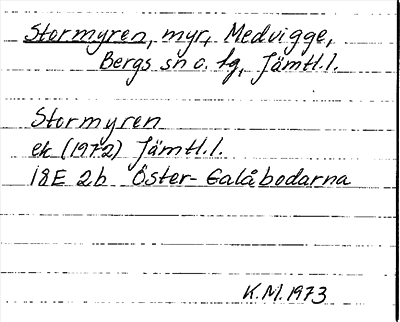 Stormyren, myr, Medvigge,
Bergs sn o. tg, Jämtl.l.
Stormyren
ek (1972) Jämtl.l.
18E 2b Öster-Galåbodarna
K.M. 1973